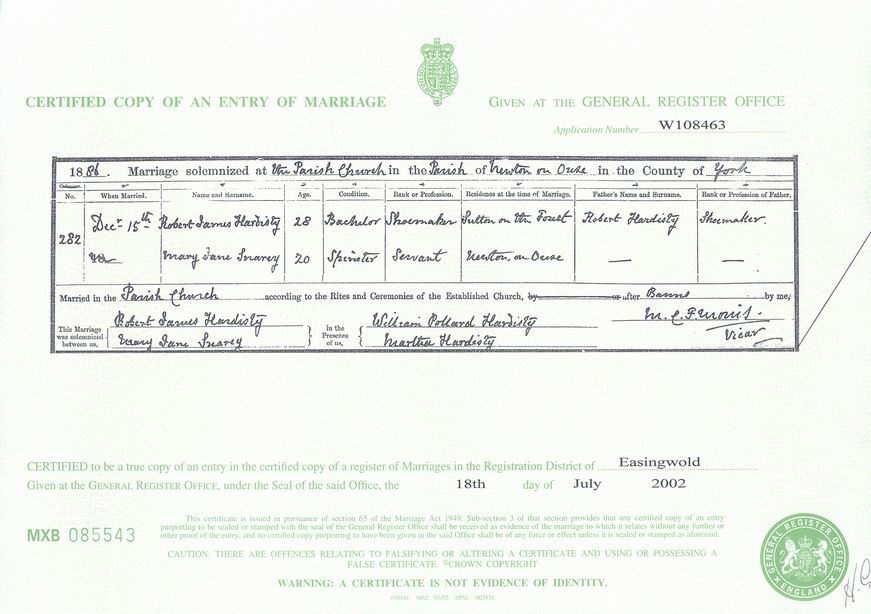 CERTIFIED COPY OF AN ENTRY OF MARRIAGE
GIVEN AT THE GENERAL REGISTER OFFICE
Application Number W108463
1886. Marriage solemnized at the Parish Church in the Parish of Newton on Ouse in the County of York
No. When Married. Name and Surname. Age. Condition. Rank or Profession. Residence at the time of Marriage. Father's Name and Surname. Rank or Profession of Father.
282 Decr 15th Robert James Hardisty 28 Bachelor Shoemaker Sutton on the Forest Robert Hardisty Shoemaker.
Mary Jane Snarey 20 Spinster Servant Newton on Ouse — —
Married in the Parish Church according to the Rites and Ceremonies of the Established Church, by or after Banns by me,
This Marriage was solemnized between us, Robert James Hardisty in the Presence of us, William Pollard Hardisty M. C. F. Morris.
Mary Jane Snarey Martha Hardisty Vicar
CERTIFIED to be a true copy of an entry in the certified copy of a register of Marriages in the Registration District of Easingwold
Given at the GENERAL REGISTER OFFICE, under the Seal of the said Office, the 18th day of July 2002
MXB 085543
This certificate is issued in pursuance of section 65 of the Marriage Act 1949. Sub-section 3 of that section provides that any certified copy of an entry
purporting to be sealed or stamped with the seal of the General Register Office shall be received as evidence of the marriage to which it relates without any further or
other proof of the entry, and no certified copy purporting to have been given in the said Office shall be of any force or effect unless it is sealed or stamped as aforesaid.
CAUTION: THERE ARE OFFENCES RELATING TO FALSIFYING OR ALTERING A CERTIFICATE AND USING OR POSSESSING A
FALSE CERTIFICATE. ©CROWN COPYRIGHT
WARNING: A CERTIFICATE IS NOT EVIDENCE OF IDENTITY.
GENERAL REGISTER OFFICE
ENGLAND